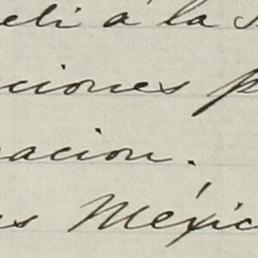 eli á la
ciones p
acion.
es Méxic